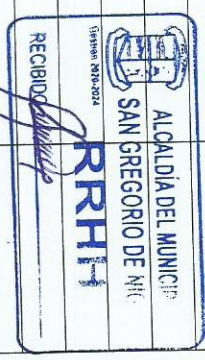 ALCALDÍA DEL MUNICIP
SAN GREGORIO DE NIG
Gestion 2020-2024
RRHH
RECIBIDO